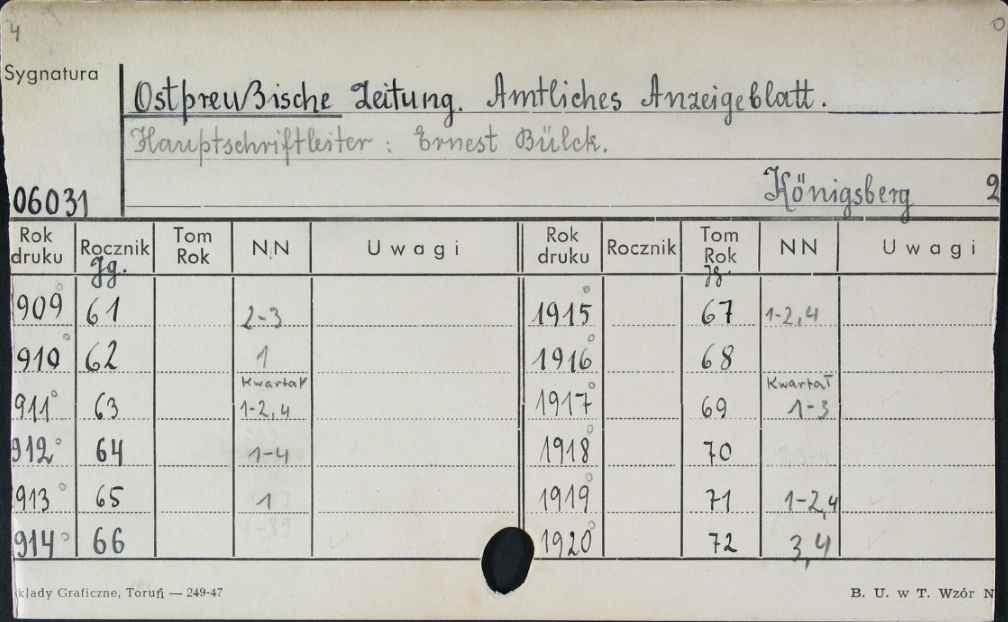 4 0
Sygnatura
Ostpreußische Zeitung. Amtliches Anzeigeblatt.
Hauptschriftleiter : Ernest Bülck.
06031 Königsberg 2
Rok druku Rocznik Jg. Tom Rok NN Uwagi Rok druku Rocznik Tom Rok Jg. NN Uwagi
909 61 2-3 1915 67 1-2,4
910 62 1 1916 68
Kwartał Kwartał
911 63 1-2,4 1917 69 1-3
912 64 1-4 1918 70
913 65 1 1919 71 1-2,4
914 66 1920 72 3,4
kłady Graficzne, Toruń — 249-47 B. U. w T. Wzór N